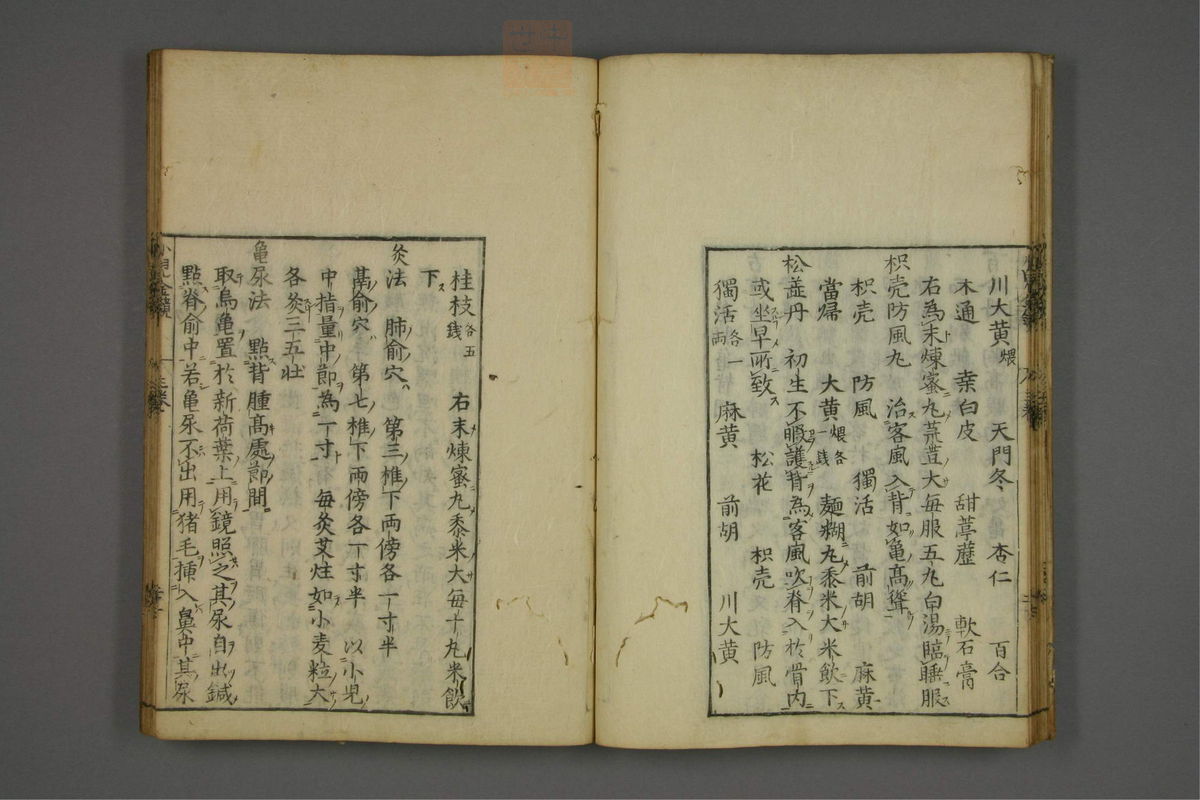 川大黄煨 天門冬 杏仁 百合
木通 桒白皮 甜葶藶 軟石膏
右為末煉蜜丸荒荳大毎服五丸白湯臨睡服
枳壳防風丸 治客風入背如亀高聳
枳壳 防風 獨活 前胡 麻黄
當帰 大黄煨各一銭 麵糊丸黍米大米飲下
松蘂丹 初生不暇護背為客風吹脊入於骨内
或坐早所致 松花 枳壳 防風
獨活各一両 麻黄 前胡 川大黄
桂枝各五銭 右末煉蜜丸黍米大毎十丸米飲
下
灸法 肺俞穴 第三椎下両傍各一寸半
膈俞穴 第七椎下両傍各一寸半 以小児
中指量中節為一寸 毎灸艾炷如小麦粒大
各灸三五壮
亀尿法 點背腫高處節間
取烏亀置於新荷葉上用鏡照之其尿自出鍼
點脊俞中若亀尿不出用猪毛挿入鼻中其尿